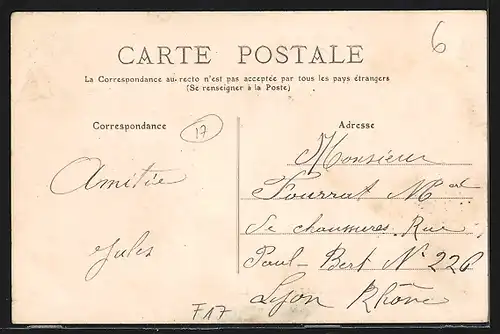 6
CARTE POSTALE
La Correspondance au recto n'est pas acceptée par tous les pays étrangers
(Se renseigner à la Poste)
Correspondance
17
Amitié
Jules
F17
Adresse
Monsieur
Pourrat Mart
de chaussures Rue
Paul-Bert N° 226
Lyon Rhône